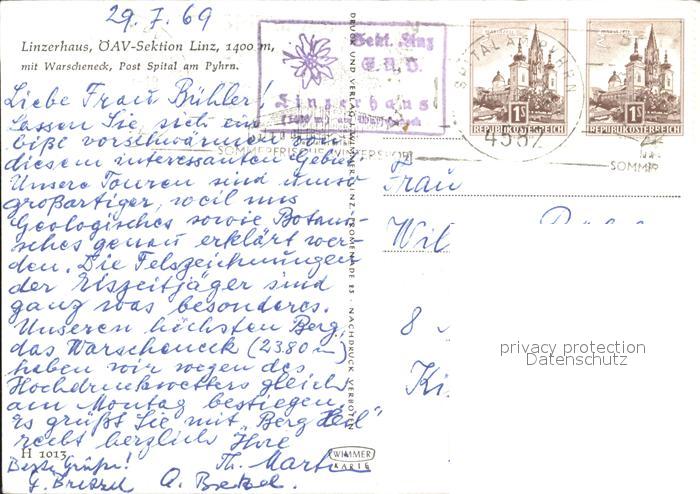 29.7.69
Linzerhaus, ÖAV-Sektion Linz, 1400 m,
mit Warscheneck, Post Spital am Pyhrn.
Liebe Frau Bühler!
Lassen Sie sich ein
biße vorschwärmen von
diesem interessanten Gebiet.
Unsere Touren sind umso
großartiger, weil uns
Geologisches sowie Botani-
sches genau erklärt wer-
den. Die Felszeichnungen
der Eiszeitjäger sind
ganz was besonderes.
Unseren höchsten Berg,
das Warscheneck (2380 m)
haben wir wegen des
Hochdruckwetters gleich
am Montag bestiegen.
Es grüßt Sie mit "Berg Heil"
recht herzlich Ihre
H 1013
Th. Marte
Beste Grüße!
DRUCK UND VERLAG WIMMER, LINZ, PROMENADE 23 - NACHDRUCK VERBOTEN
WIMMER
KARTE
Sekt. Linz
Linzerhaus
SPITAL AM PYHRN
4582
SOMMERFRISCHE WINTERSPORT
SOMM
1S
REPUBLIK ÖSTERREICH
1S
REPUBLIK ÖSTERREICH
Frau
Wil
8
Ki
privacy protection
Datenschutz